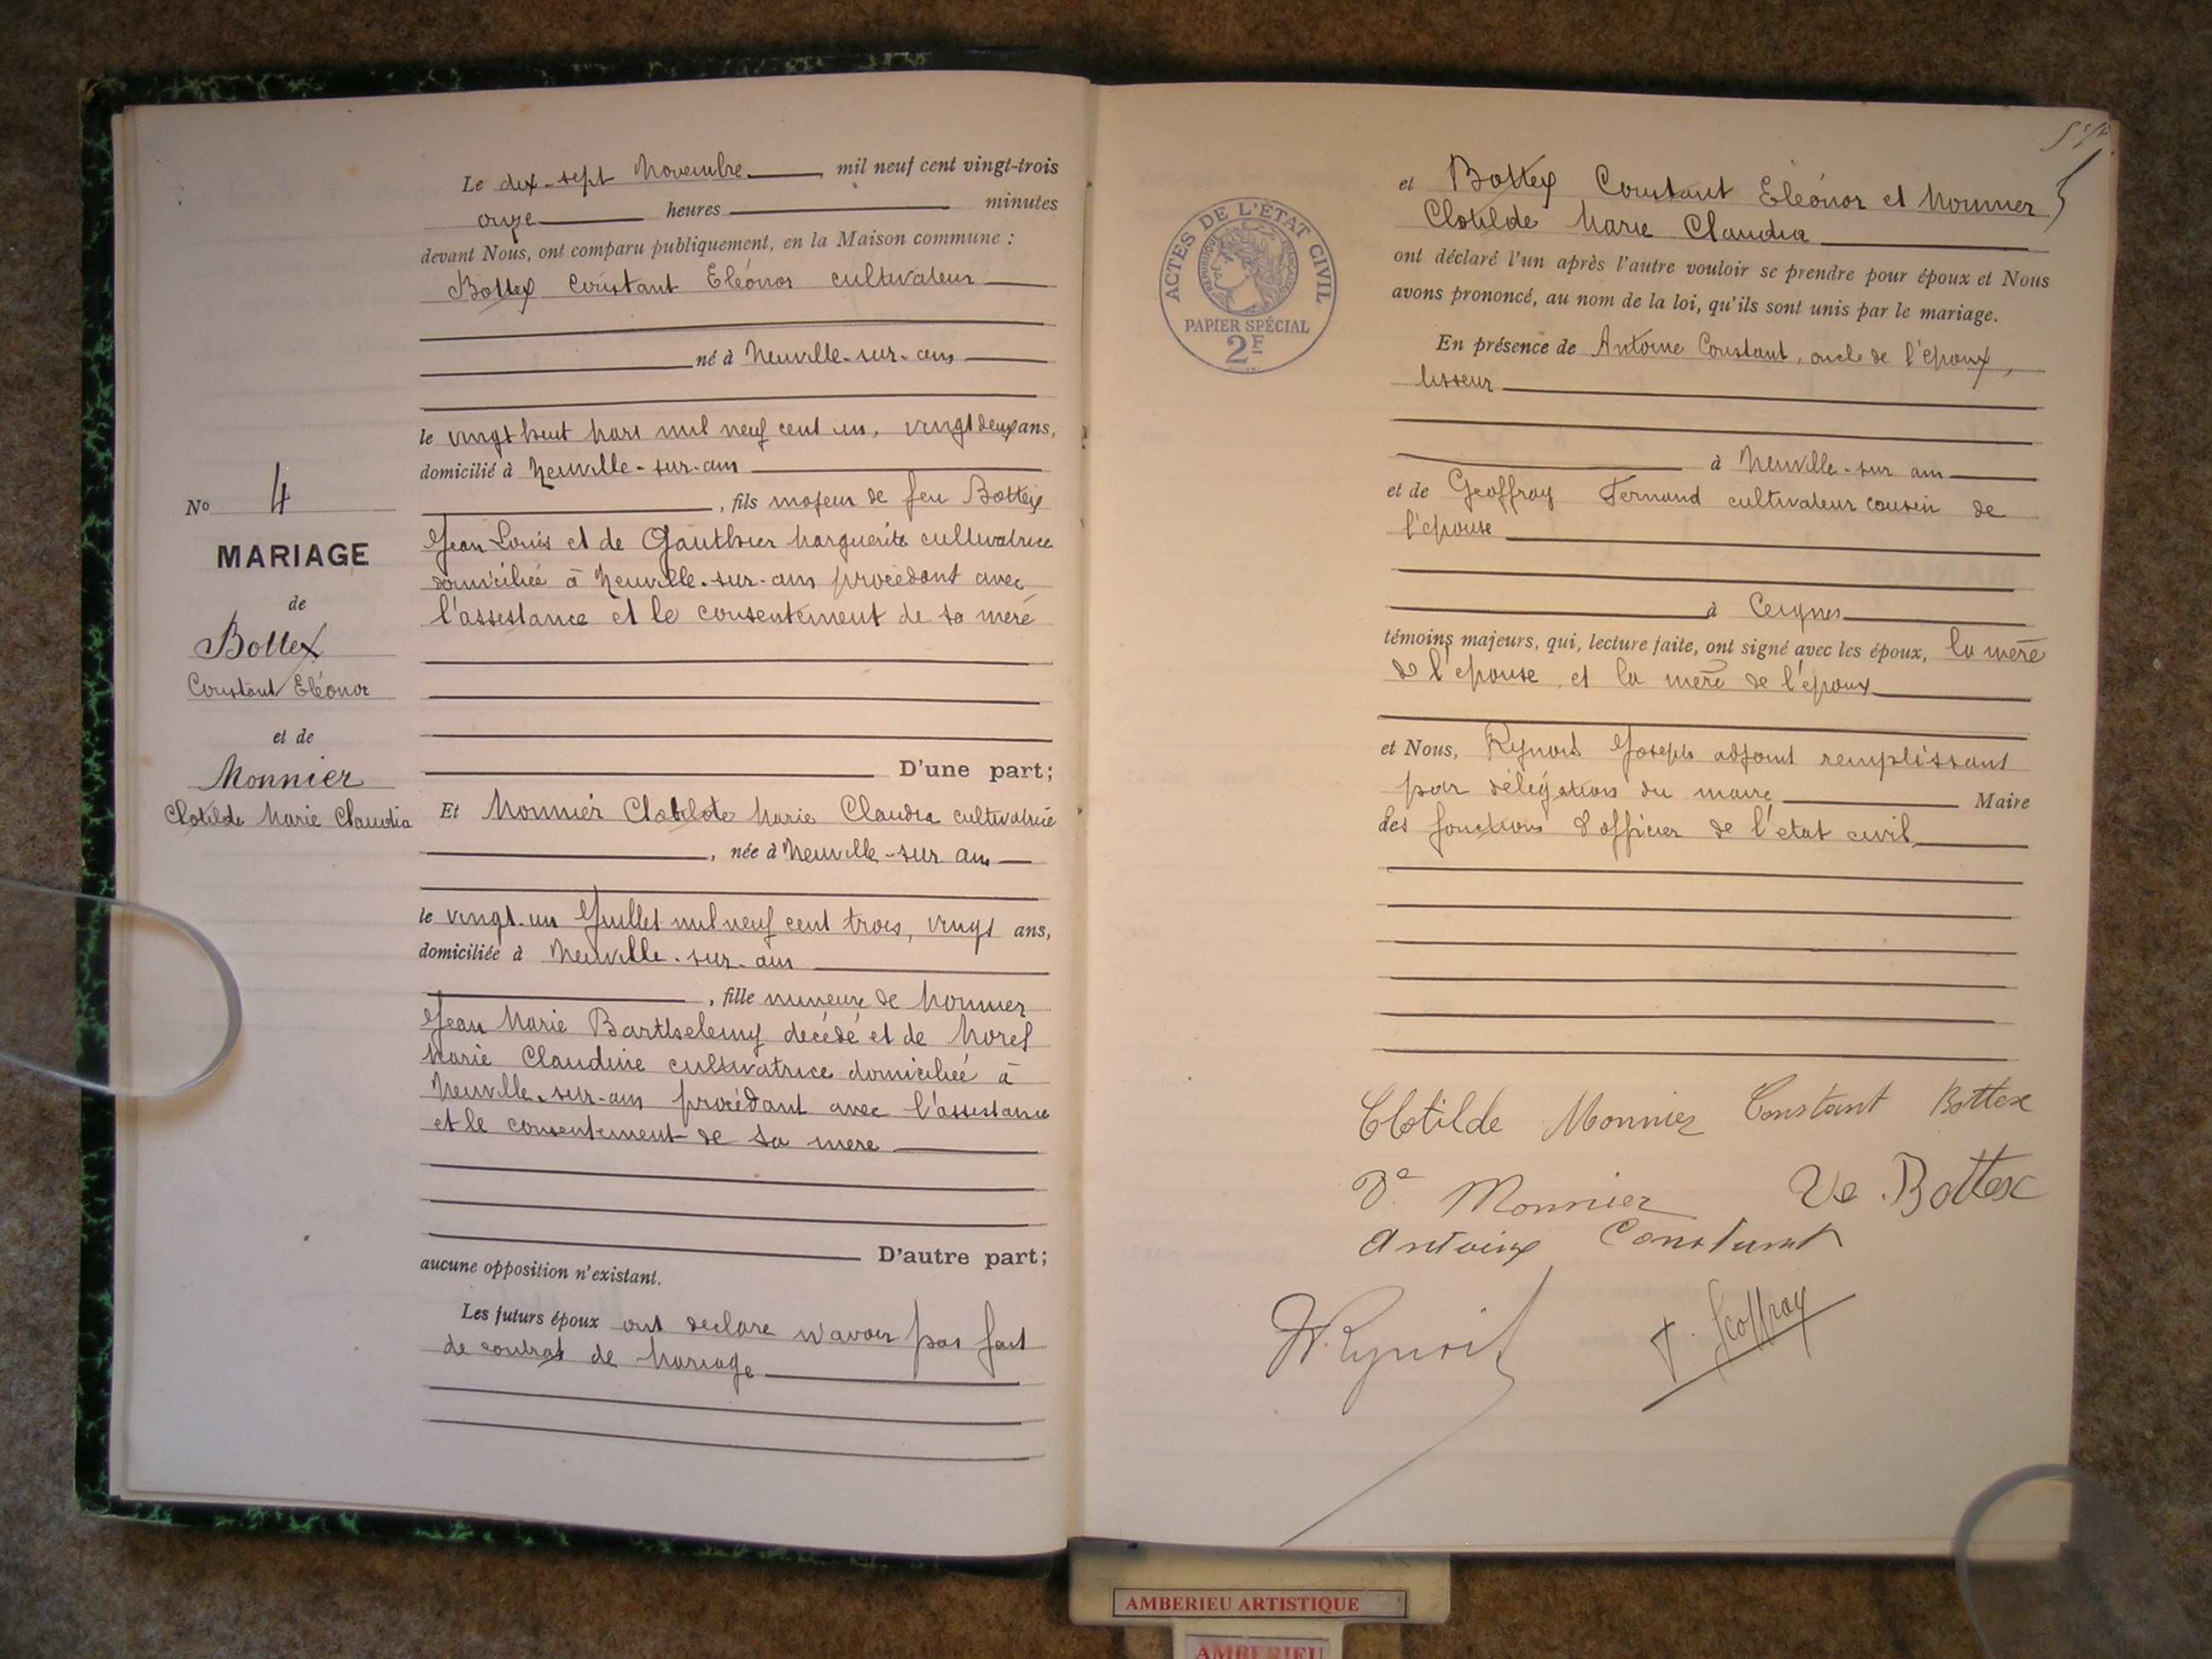 No 4
MARIAGE
de
Bottex
Constant Eléonor
et de
Monnier
Clotilde Marie Claudia
Le dix-sept Novembre mil neuf cent vingt-trois
onze heures minutes
devant Nous, ont comparu publiquement, en la Maison commune :
Bottex Constant Eléonor cultivateur
né à Neuville-sur-ain
le vingt huit Mars mil neuf cent un, vingt deux ans,
domicilié à Neuville-sur-ain
, fils majeur de feu Bottex
Jean Louis et de Gauthier Marguerite cultivatrice
domiciliée à Neuville-sur-ain procédant avec
l'assistance et le consentement de sa mère
D'une part;
Et Monnier Clotilde Marie Claudia cultivatrice
, née à Neuville-sur ain
le vingt-un Juillet mil neuf cent trois, vingt ans,
domiciliée à Neuville-sur-ain
, fille mineure de Monnier
Jean Marie Barthelemy décédé et de Morel
Marie Claudine cultivatrice domiciliée à
Neuville-sur-ain procédant avec l'assistance
et le consentement de sa mere
D'autre part;
aucune opposition n'existant.
Les futurs époux ont declare n'avoir pas fait
de contrat de Mariage
ACTES DE L'ÉTAT CIVIL
RÉPUBLIQUE FRANÇAISE
PAPIER SPÉCIAL
2F
et Bottex Constant Eléonor et Monnier
Clotilde Marie Claudia
ont déclaré l'un après l'autre vouloir se prendre pour époux et Nous
avons prononcé, au nom de la loi, qu'ils sont unis par le mariage.
En présence de Antoine Constant, oncle de l'époux,
tisseur
à Neuville-sur ain
et de Geoffray Fernand cultivateur cousin de
l'épouse
à
témoins majeurs, qui, lecture faite, ont signé avec les époux, la mère
de l'épouse, et la mère de l'époux
et Nous, Joseph adjoint remplissant
par délégation du maire Maire
des fonctions d'officier de l'etat civil
Clotilde Monnier Constant Bottex
Ve Monnier Ve Bottex
Antoine Constant
F. Geoffray
AMBERIEU ARTISTIQUE
AMBERIEU